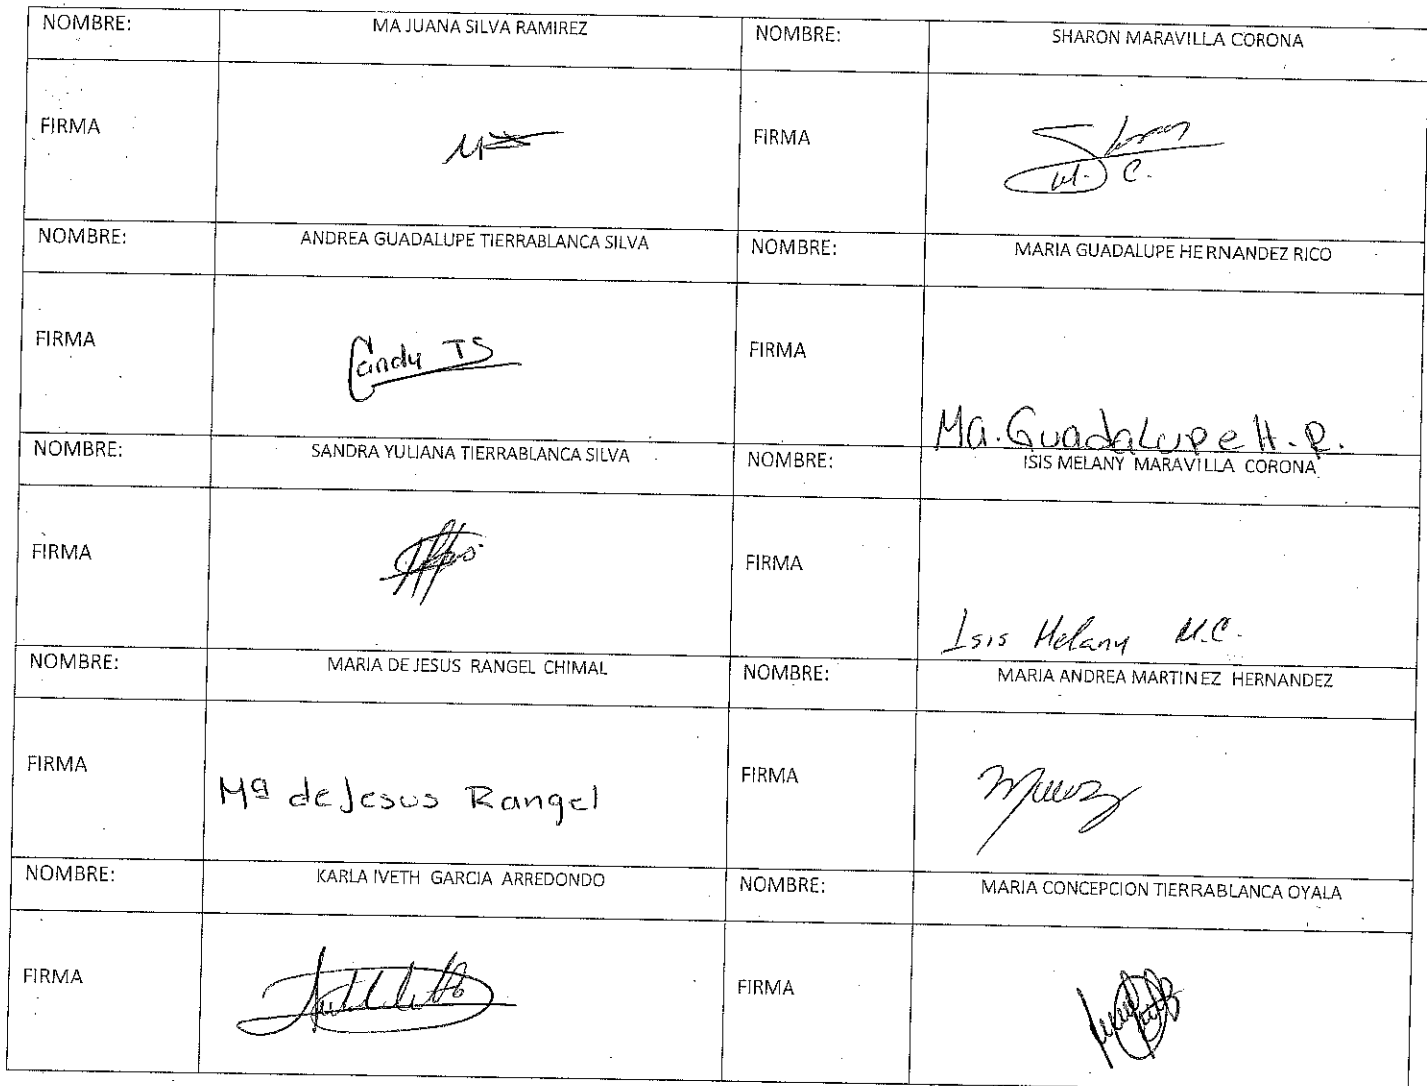 NOMBRE: MA JUANA SILVA RAMIREZ NOMBRE: SHARON MARAVILLA CORONA
FIRMA FIRMA Sharon
M. C.
NOMBRE: ANDREA GUADALUPE TIERRABLANCA SILVA NOMBRE: MARIA GUADALUPE HERNANDEZ RICO
FIRMA TS FIRMA Ma. Guadalupe H. R.
NOMBRE: SANDRA YULIANA TIERRABLANCA SILVA NOMBRE: ISIS MELANY MARAVILLA CORONA
FIRMA FIRMA Isis Melany M.C.
NOMBRE: MARIA DE JESUS RANGEL CHIMAL NOMBRE: MARIA ANDREA MARTINEZ HERNANDEZ
FIRMA Mª de Jesus Rangel FIRMA
NOMBRE: KARLA IVETH GARCIA ARREDONDO NOMBRE: MARIA CONCEPCION TIERRABLANCA OYALA
FIRMA FIRMA